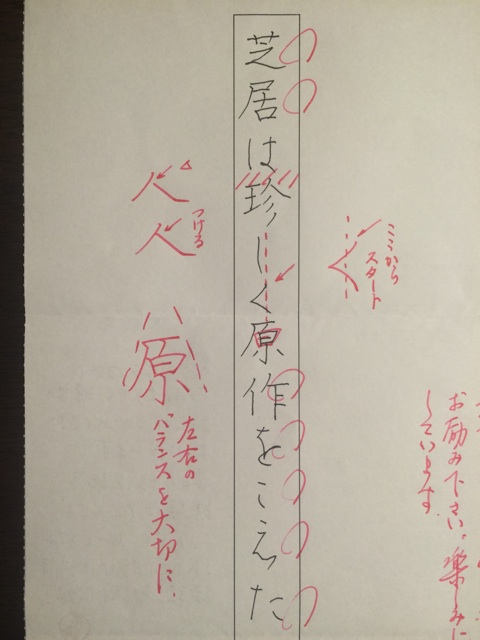 お励み下さい。楽しみに
しています。
ここから
スタート
芝居は珍しく原作をこえた
つける
人
人
原
左右の
バランスを大切に。